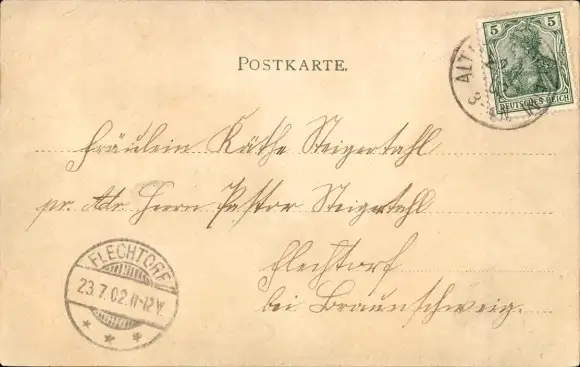 POSTKARTE.
5
DEUTSCHES REICH
ALT
Fräulein Käthe Steigertahl
pr. Adr. Herrn Pastor Steigertahl
Flechtorf
bei Braunschweig.
FLECHTORF
23.7.02.11-12V.
* * *